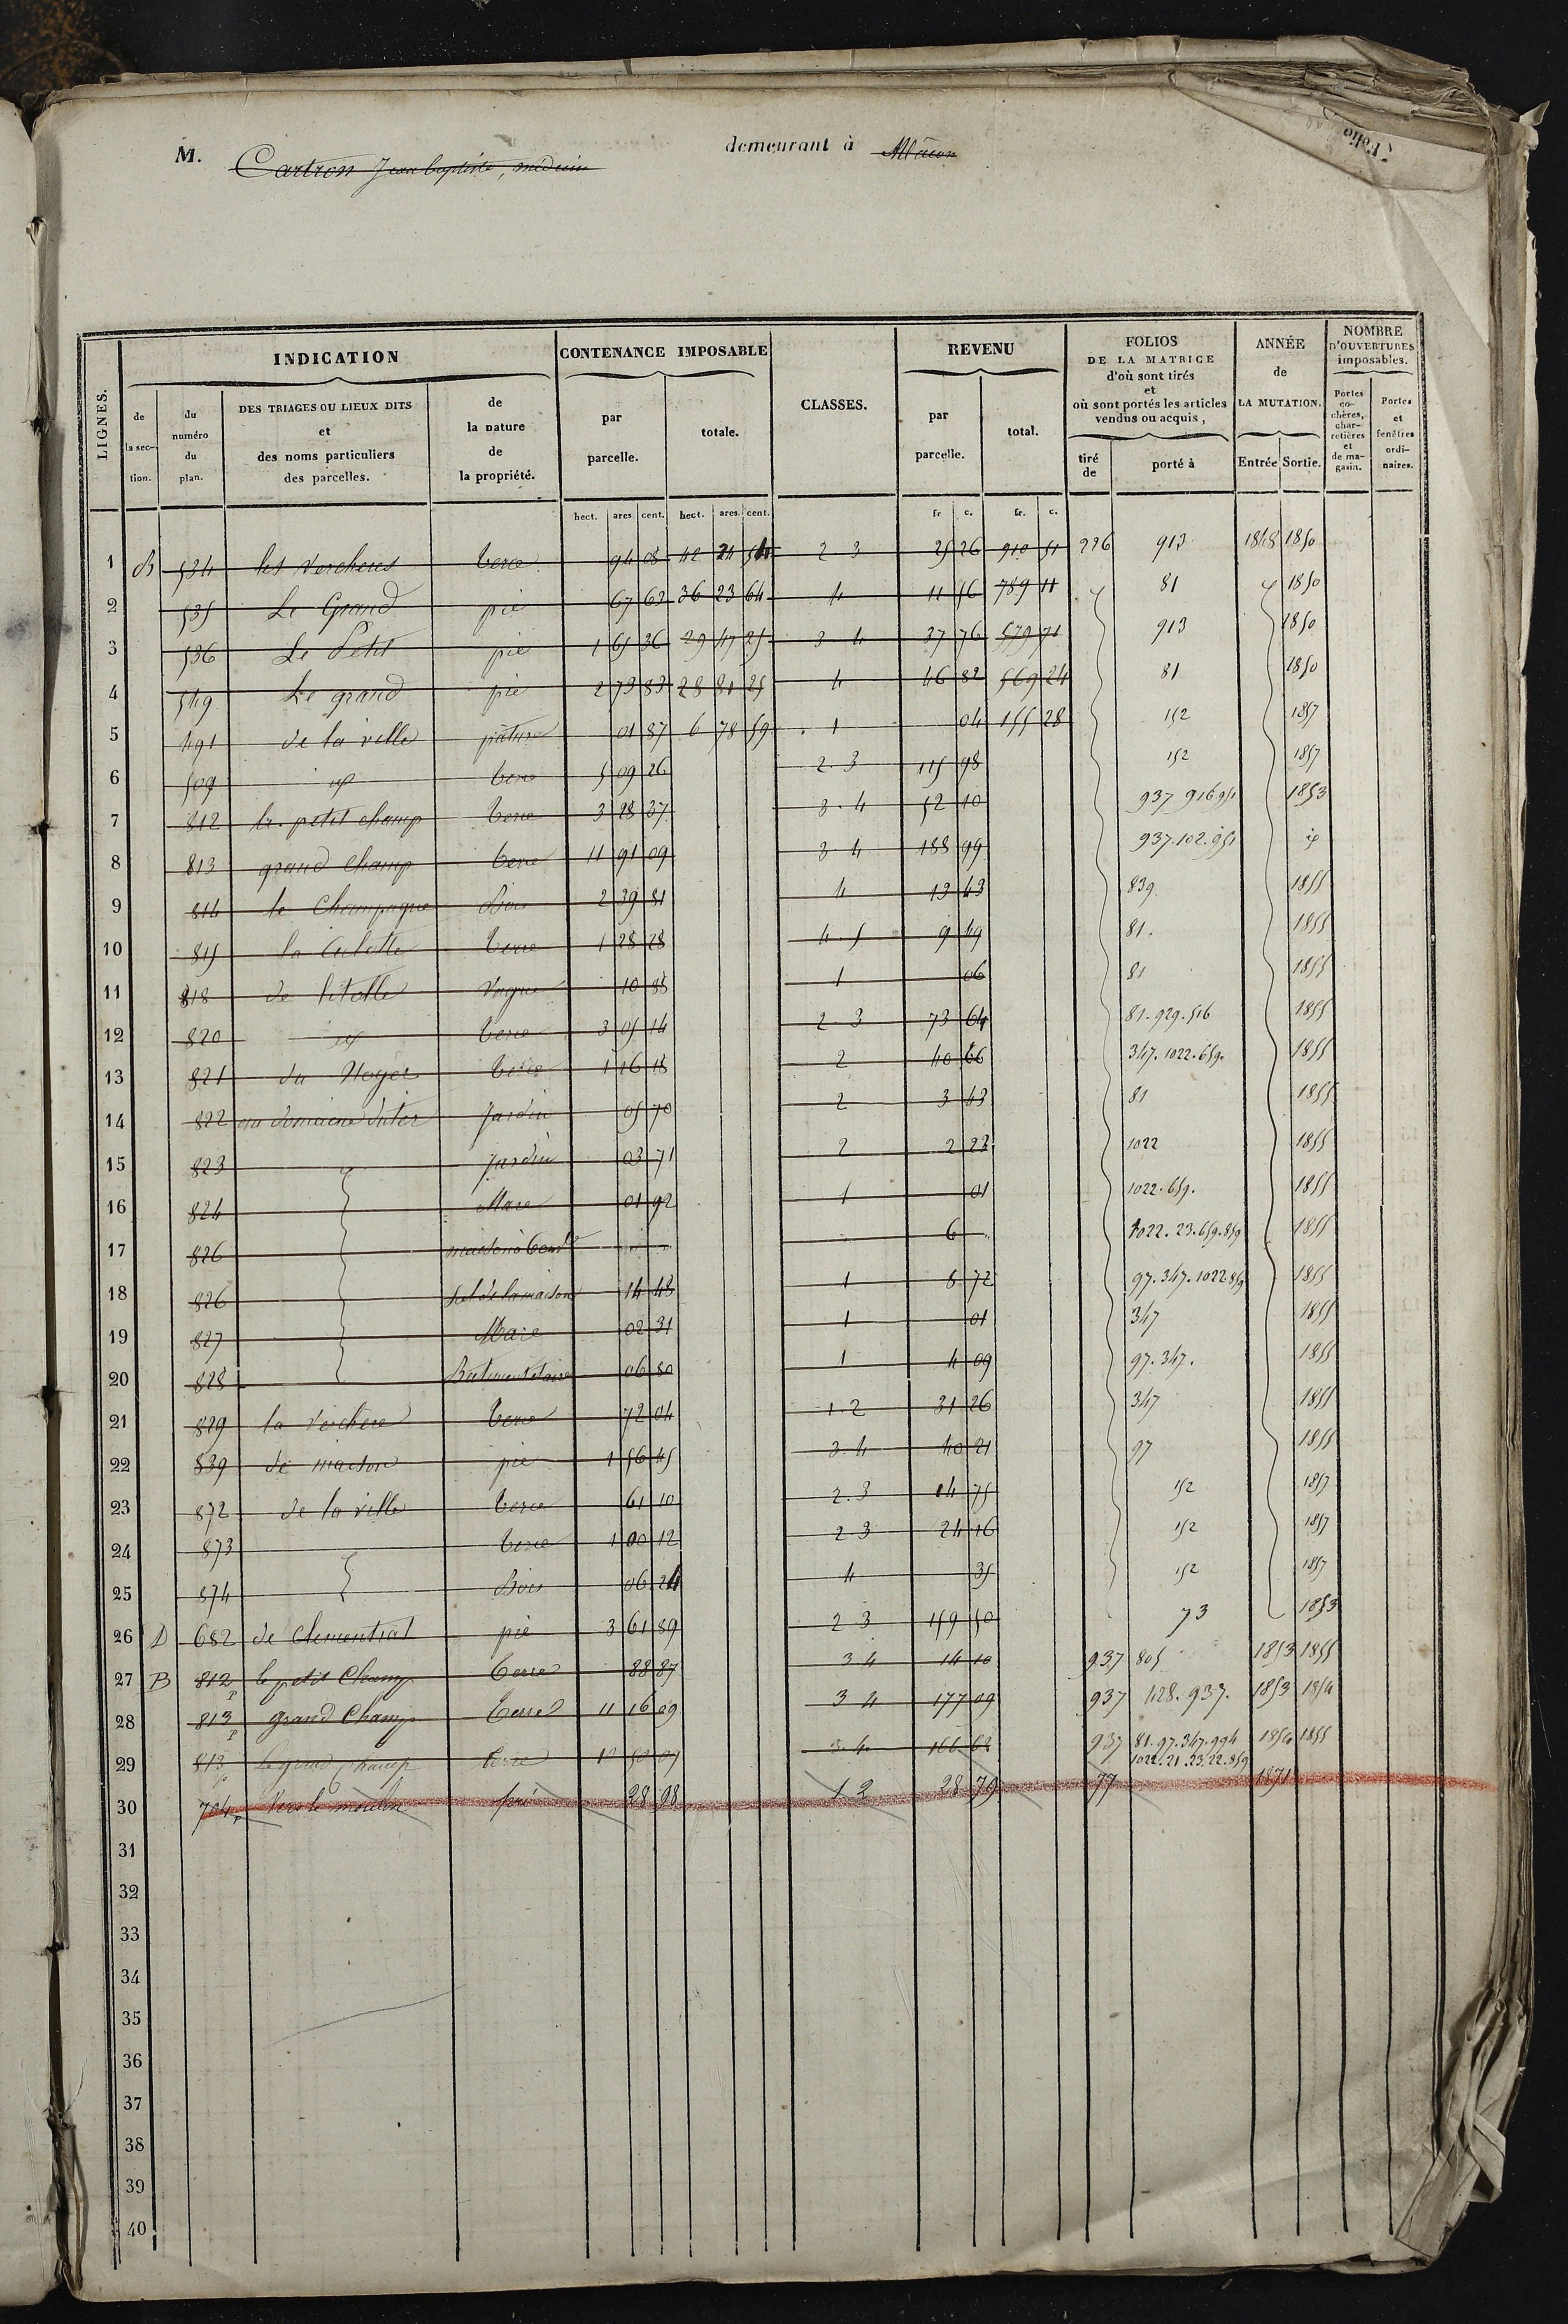 M. Cartron Jean baptiste, médecin demeurant à Mâcon
Folio
LIGNES. INDICATION CONTENANCE IMPOSABLE CLASSES. REVENU FOLIOS DE LA MATRICE d'où sont tirés et où sont portés les articles vendus ou acquis, ANNÉE de LA MUTATION. NOMBRE D'OUVERTURES imposables.
de la section. du numéro du plan. DES TRIAGES OU LIEUX DITS et des noms particuliers des parcelles. de la nature de la propriété. par parcelle. totale. par parcelle. total. tiré de porté à Entrée Sortie. Portes cochères, charretières et de magasin. Portes et fenêtres ordinaires.
hect. ares. cent. hect. ares. cent. fr. c. fr. c.
1 B 534 les Vercheres terre 94 08 42 24 54 2 3 25 26 910 51 226 913 1848 1850
2 535 Le Grand pré 67 63 36 23 64 4 11 56 789 11 81 1850
3 536 Le Petit pré 1 65 36 29 47 25 3 4 37 76 579 71 913 1850
4 549 Le grand pré 2 73 83 28 81 25 4 46 82 569 24 81 1850
5 491 de la ville pature 01 87 6 78 59 1 04 155 28 152 1857
6 509 id terre 5 09 26 2 3 115 98 152 1857
7 812 le petit champ terre 3 28 37 3 4 52 10 937 916 951 1853
8 813 grand Champ terre 11 91 09 3 4 188 99 937.102.951 id
9 814 le Champagne Bois 2 39 81 4 13 43 839 1855
10 815 la Culotte terre 1 28 28 4 5 9 49 81. 1855
11 818 de Vague 10 88 1 06 81 1855
12 820 id terre 3 05 14 2 3 73 64 81.929.516 1855
13 821 du Noyer terre 1 16 18 2 40 66 347.1022.659. 1855
14 822 au domaine Jardin 05 70 2 3 43 81 1855
15 823 Jardin 03 71 2 2 23 1022 1855
16 824 Mare 01 92 1 01 1022.659. 1855
17 826 maison 6 1022.23.659.859 1855
18 826 Sol de la maison 14 48 1 8 72 97.347.1022.859 1855
19 827 Mare 02 31 1 01 347 1855
20 828 Batiment 06 80 1 4 09 97.347. 1855
21 829 la Verchere terre 72 04 1.2 31 26 347 1855
22 839 de maison pré 1 56 45 3.4 40 21 97 1855
23 872 de la ville terre 61 10 2.3 14 75 152 1857
24 873 terre 1 00 12 2 3 24 16 152 1857
25 874 Bois 06 24 4 35 152 1857
26 D 682 de Clementiat pré 3 61 89 2 3 159 50 73 1853
27 B 812 p le petit Champ terre 88 87 3 4 14 10 937 805 1853 1855
28 813 p grand Champ terre 11 16 09 3 4 177 09 937 428.937. 1853 1854
29 813 p le grand champ terre 3 4 166 62 937 81.97.347.994 1022.21.23.22.859 1854 1855
30 704 p Vers le moulin pré 28 98 1 2 28 79 77 1871
31
32
33
34
35
36
37
38
39
40